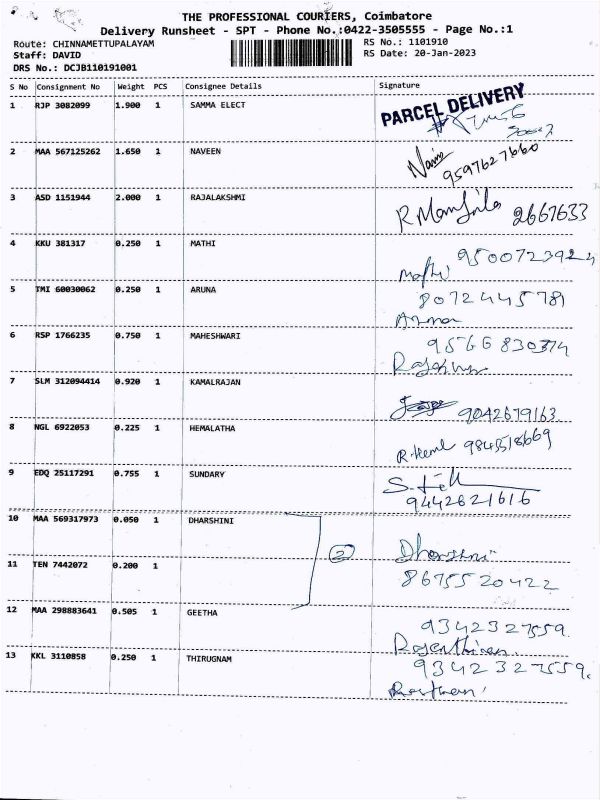 THE PROFESSIONAL COURIERS, Coimbatore
Delivery Runsheet - SPT - Phone No.:0422-3505555 - Page No.:1
Route: CHINNAMETTUPALAYAM RS No.: 1101910
Staff: DAVID RS Date: 20-Jan-2023
DRS No.: DCJB110191001
S No Consignment No Weight PCS Consignee Details Signature
1 RJP 3082099 1.900 1 SAMMA ELECT PARCEL DELIVERY
2 MAA 567125262 1.650 1 NAVEEN
9597627660
3 ASD 1151944 2.000 1 RAJALAKSHMI R 2667633
4 KKU 381317 0.250 1 MATHI 9500723924
Mathi
5 TMI 60030062 0.250 1 ARUNA 8072445781
Aruna
6 RSP 1766235 0.750 1 MAHESHWARI 9566830374
7 SLM 312094414 0.920 1 KAMALRAJAN 9042679163
8 NGL 6922053 0.225 1 HEMALATHA R.Heml 9843518669
9 EDQ 25117291 0.755 1 SUNDARY
9442621616
10 MAA 569317973 0.050 1 DHARSHINI 2 Dharshini
11 TEN 7442072 0.200 1 8675520422
12 MAA 298883641 0.505 1 GEETHA 9342327559.
13 KKL 3110858 0.250 1 THIRUGNAM 9342327559.